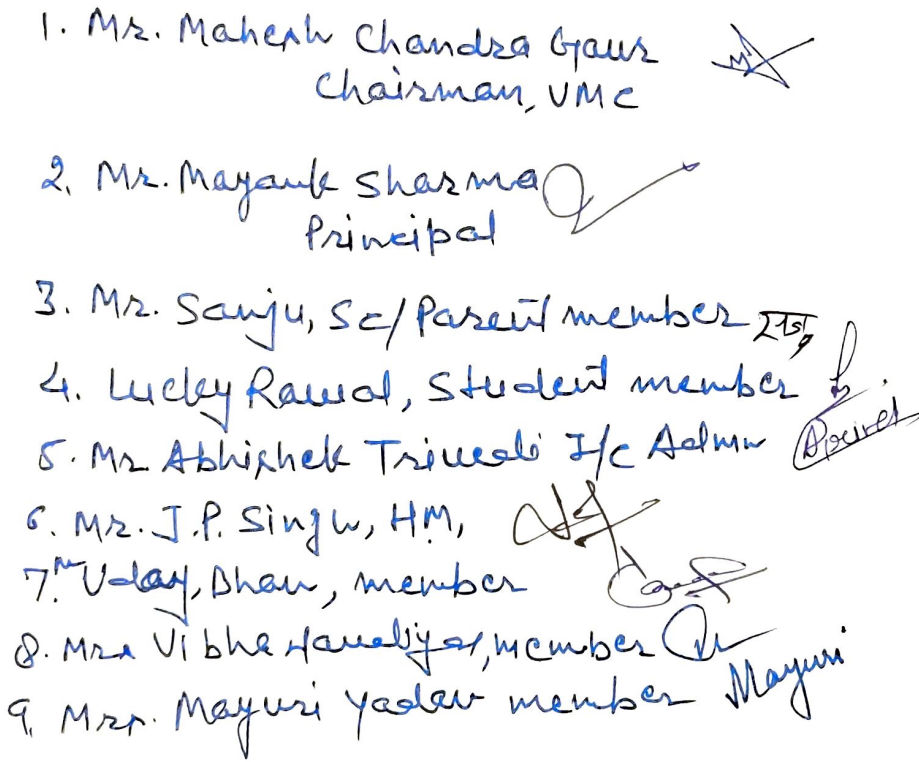 1. Mr. Mahesh Chandra Gaur
Chairman, VMC
2. Mr. Mayank Sharma
Principal
3. Mr. Sanju, Sc/Parent member
4. Lucky Rawal, Student member
5. Mr Abhishek Trivedi I/c Admn
6. Mr. J.P. Singh, HM,
7. Mr Uday, Bhan, member
8. Mrs Vibha member
9. Mrs. Mayuri Yadav member Mayuri